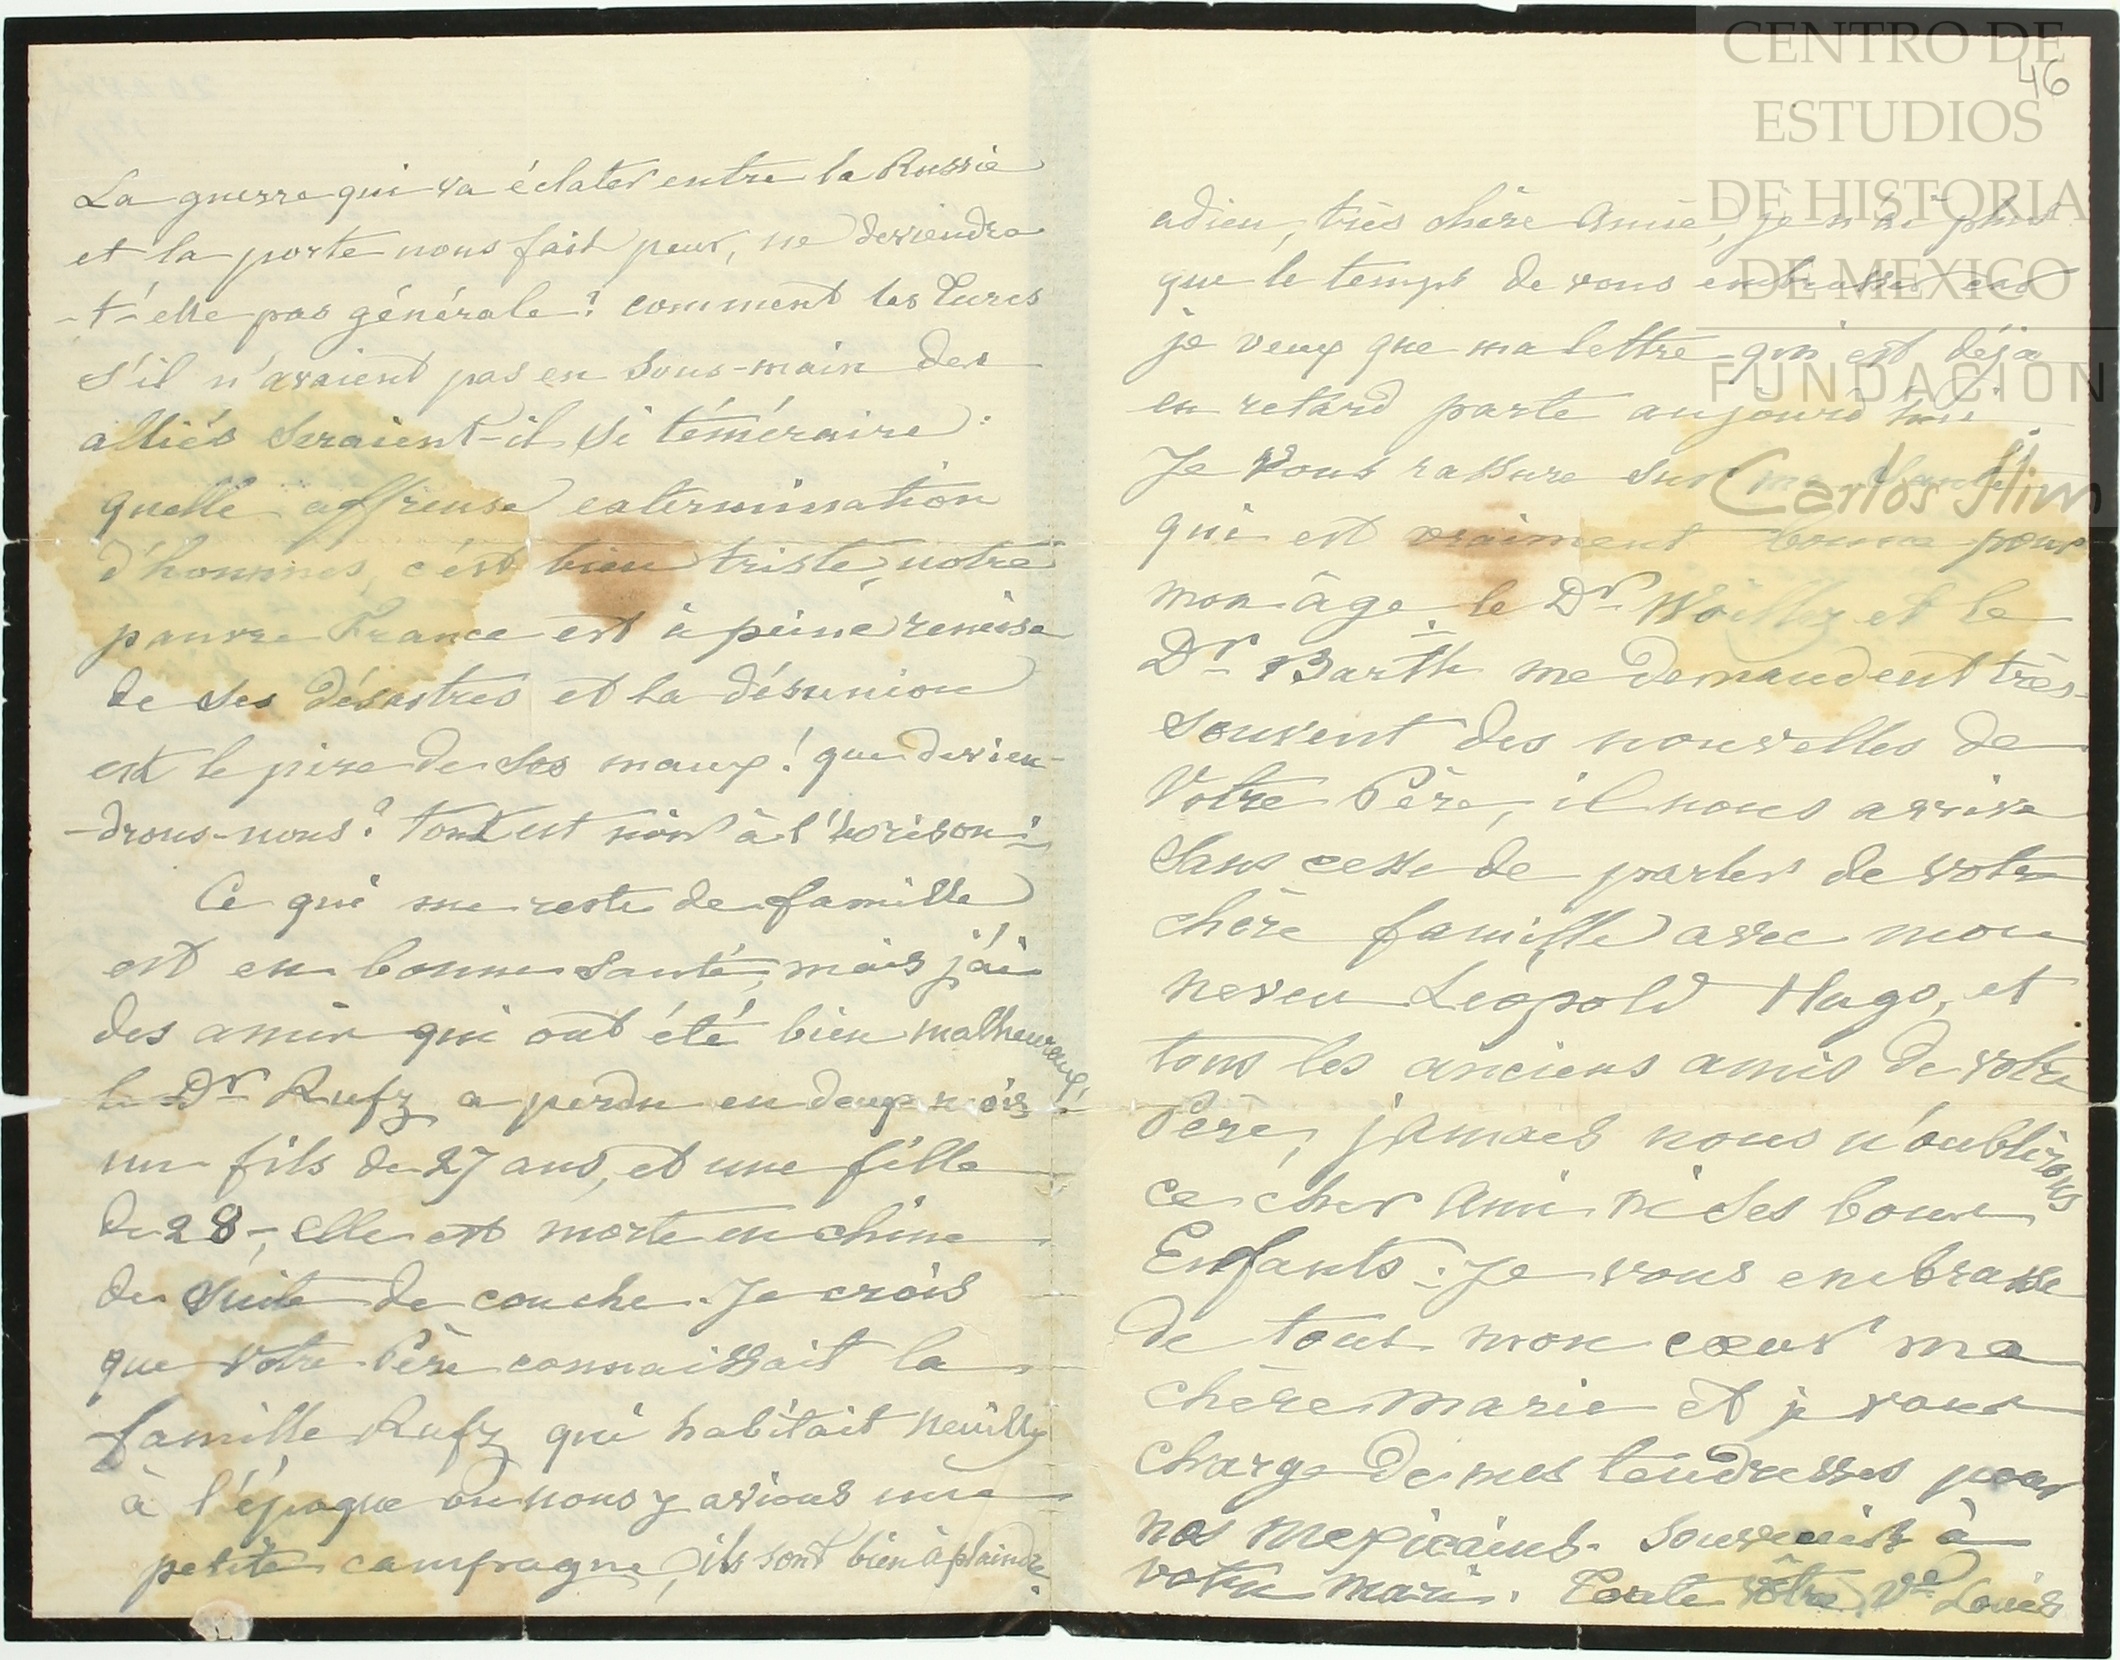 La guerre qui va éclater entre la Russie
et la porte nous fait peur, ne deviendra
-t-elle pas générale? comment les Turcs
s'il n'avaient pas en sous-main des
alliés seraient-il si téméraire:
quelle affreuse extermination
d'hommes, c'est bien triste, notre
pauvre France est à peine remise
de ses désastres et la désunion
est le pire de ses maux! que devien-
-drons-nous? tout est noir à l'horison!
Ce qui me reste de famille
est en bonne santé, mais j'ai
des amis qui ont été bien malheureux,
le Dr Rufz a perdu en deux mois
un fils de 27 ans, et une fille
de 28-, elle est morte en chine
de suite de couche. Je crois
que votre Père connaissait la
famille Rufz qui habitait Neuilly
à l'époque ou nous y avions une
petite campagne, ils sont bien à plaindre.
46
adieu, très chère Amie, je n'ai plus
que le temps de vous embrasser car
je veux que ma lettre qui est déja
en retard parte aujourd'hui.
Je vous rassure sur ma santé
qui est vraiment bonne pour
mon âge. le Dr Woillez et le
Dr Barth me demandent très-
souvent des nouvelles de
Votre Père, il nous arrive
sans cesse de parler de votre
chère famille avec mon
neveu Léopold Hugo, et
tous les anciens amis de votre
Père, jamais nous n'oublirons
ce cher Ami ni ses bons
Enfants. Je vous embrasse
de tout mon cœur ma
chère Marie et je vous
charge de mes tendresses pour
nos mexicains. Souvenirs à
votre mari. Toute vôtre Ve Louis
CENTRO DE
ESTUDIOS
DE HISTORIA
DE MEXICO
FUNDACIÓN
Carlos Slim